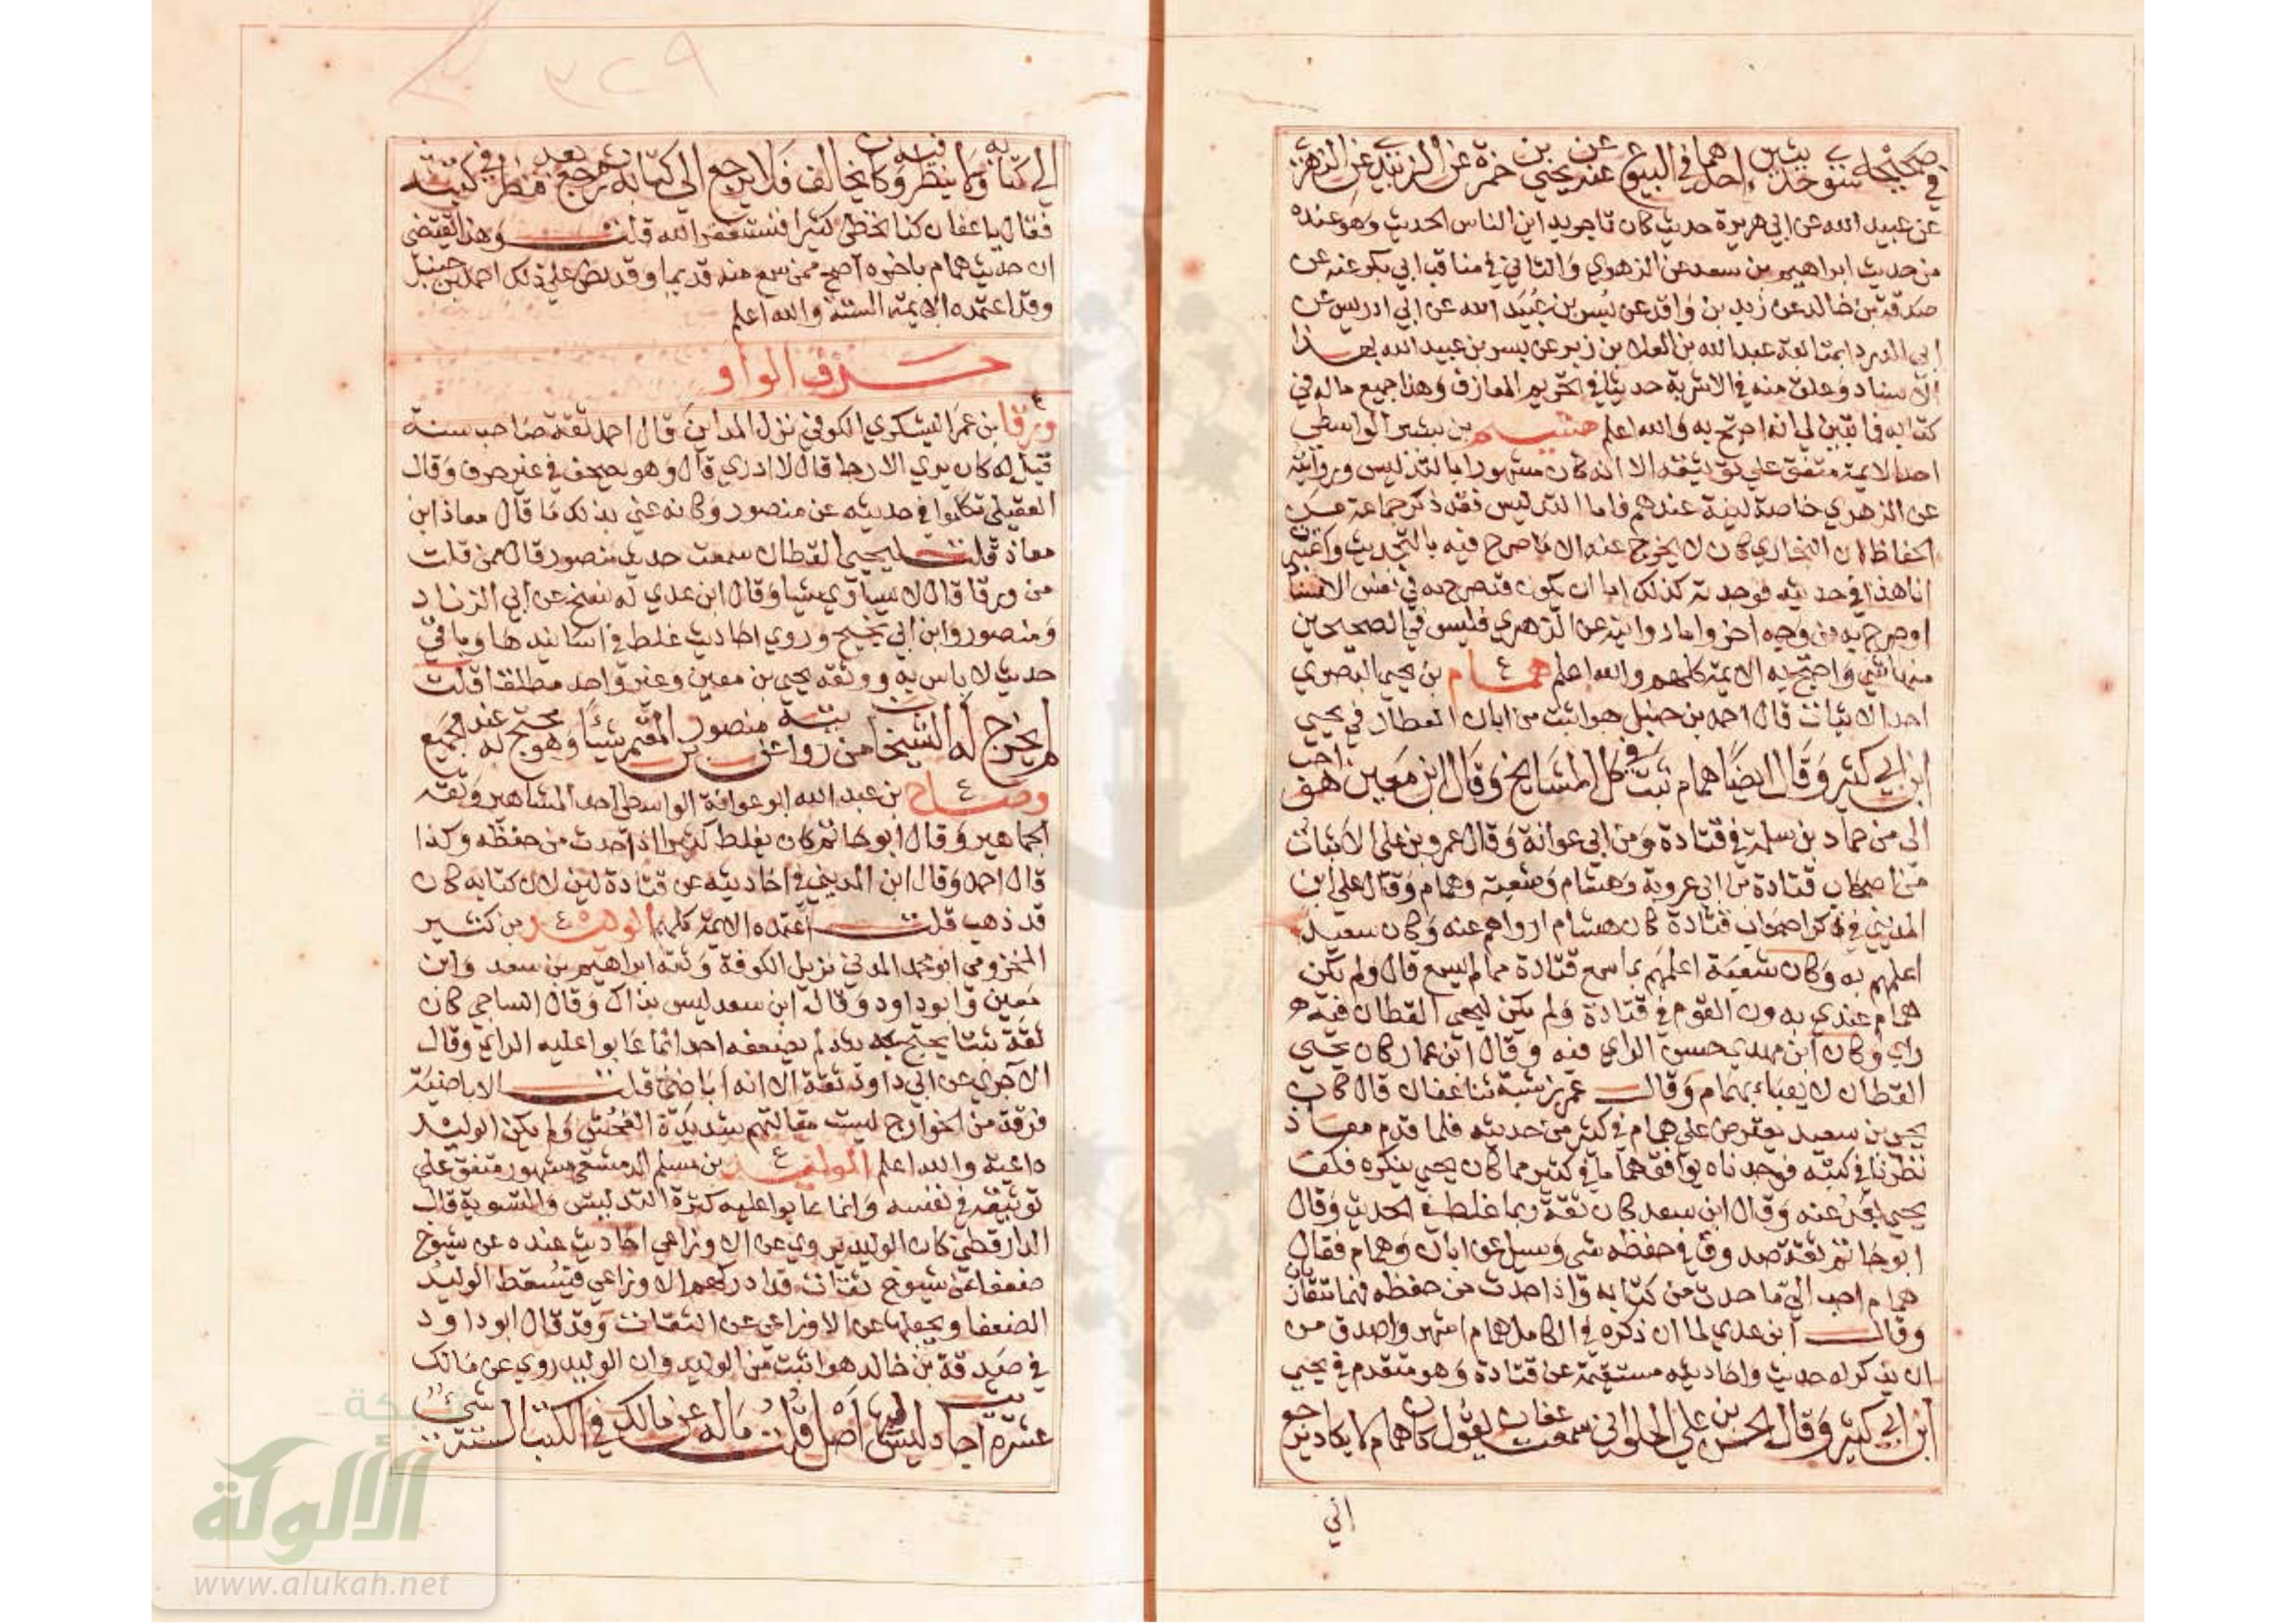 في صحيحه سوى حديثين احدهما في البيوع عن يحيى بن حمزة عن الزبيدي عن الزهري
عن عبيد الله عن ابي هريرة حديث كان تاجر يداين الناس الحديث وهو عنده
من حديث ابراهيم بن سعد عن الزهري والثاني في مناقب ابي بكر عنه عن
صدقة بن خالد عن زيد بن واقد عن بسر بن عبيد الله عن ابي ادريس عن
ابي الدرداء بمتابعة عبد الله بن العلا بن زبر عن بسر بن عبيد الله بهذا
الاسناد وعلق منه في الاشربة حديثا في تحريم المعازف وهذا جميع ماله في
كتابه فاتبين لي انه احتج به والله اعلم هشيم بن بشير الواسطي
احد الايمة متفق على توثيقه الا انه كان مشهورا بالتدليس وروايته
عن الزهري خاصة لينة عندهم فاما التدليس فقد ذكر جماعة من
الحفاظ ان البخاري كان لا يخرج عنه الا ما صرح فيه بالتحديث واعتبرت
انا هذا في حديثه فوجدته كذلك اما ان يكون قد صرح به في نفس الاسناد
او صرح به من وجه اخر واما روايته عن الزهري فليس في الصحيحين
منها شي واحتج به الايمة كلهم والله اعلم همام ع بن يحيى البصري
احد الاثبات قال احمد بن حنبل هو اثبت من ابان العطار في يحيى
ابن ابي كثير وقال ايضا همام ثبت في كل المشايخ وقال ابن معين هو احب
الى من حماد بن سلمة في قتادة ومن ابي عوانة وقال عمرو بن علي الاثبات
من اصحاب قتادة بن ابي عروبة وهشام وشعبة وهمام وقال علي ابن
المديني في ذكر اصحاب قتادة كان هشام ارواهم عنه وكان سعيد
اعلمهم به وكان شعبة اعلمهم بما سمع قتادة مما لم يسمع قال ولم يكن
همام عندي بدون القوم في قتادة ولم يكن ليحيى القطان فيه
راي وكان ابن مهدي حسن الراي فيه وقال ابن عمار كان يحيى
القطان لا يعباء بهمام وقال عمر بن شبة ثنا عفان قال كان
يحيى بن سعيد يعترض على همام في كثير من حديثه فلما قدم معاذ
نظرنا في كتبه فوجدناه يوافق هماما في كثير مما كان يحيى ينكره فكف
يحيى بعد عنه وقال ابن سعد كان ثقة ربما غلط في الحديث وقال
ابو حاتم ثقة صدوق في حفظه شي وسيل عن ابان وهمام فقال
همام احب الي ما حدث من كتابه واذا حدث من حفظه فهما متقاربان
وقال ابن عدي لما ان ذكره في الكامل همام اشهر واصدق من
ان يذكر له حديث واحاديثه مستقيمة عن قتادة وهو متقدم في يحيى
ابن ابي كثير وقال الحسن بن علي الحلواني سمعت عفان يقول كان همام لا يكاد يرجع
الي
الي كتابه ولا ينظر فيه وكان يخالف فلا يرجع الى كتابه ثم رجع بعد فنظر في كتبه
فقال يا عفان كنا نخطي كثيرا فنستغفر الله قلت وهذا يقتضي
ان حديث همام باخره اصح ممن سمع منه قديما وقد نص على ذلك احمد بن حنبل
وقد اعتمده الايمة الستة والله اعلم
حرف الواو
ورقا ع بن عمر اليشكري الكوفي نزل المداين قال احمد ثقة صاحب سنة
قيل له كان يرى الارجا قال لا ادري قال وهو يصحف في غير حرف وقال
العقيلي تكلموا في حديثه عن منصور وكانه عني بذلك ما قال معاذ ابن
معاذ قلت ليحيى القطان سمعت حديث منصور قال ممن قلت
من ورقا قال لا يساوي شيا وقال ابن عدي له نسخ عن ابي الزناد
ومنصور وابن ابي نجيح وروى احاديث غلط في اسانيدها وباقي
حديثه لا باس به ووثقه يحيى بن معين وغير واحد مطلقا قلت
لم يخرج له الشيخان من روايته عن منصور بن المعتمر شيئا وهو محتج به عند الجميع
وضاح ع بن عبد الله ابو عوانة الواسطي احد المشاهير وثقه
الجماهير وقال ابو حاتم كان يغلط كثيرا اذا حدث من حفظه وكذا
قال احمد وقال ابن المديني في احاديثه عن قتادة لين لان كتابه كان
قد ذهب قلت اعتمده الايمة كلهم الوليد ع بن كثير
المخزومي ابو محمد المدني نزيل الكوفة وثقه ابراهيم بن سعد وابن
معين وابو داود وقال ابن سعد ليس بذاك وقال الساجي كان
ثقة ثبتا يحتج بحديثه لم يضعفه احد انما عابوا عليه الراي وقال
الاجري عن ابي داود ثقة الا انه اباضي قلت الاباضية
فرقة من الخوارج ليست مقالتهم شديدة الفحش ولم يكن الوليد
داعية والله اعلم الوليد ع بن مسلم الدمشقي مشهور متفق على
توثيقه في نفسه وانما عابوا عليه كثرة التدليس والتسوية قال
الدارقطني كان الوليد يروي عن الاوزاعي احاديث عنده عن شيوخ
ضعفا عن شيوخ ثقات قد ادركهم الاوزاعي فيسقط الوليد
الضعفا ويجعلها عن الاوزاعي عن الثقات وقد قال ابو داود
في صدقة بن خالد هو اثبت من الوليد وان الوليد روى عن مالك
عشرة احاديث ليس لها اصل قلت ماله عن مالك في الكتب الستة شي
شبكة
الألوكة
www.alukah.net